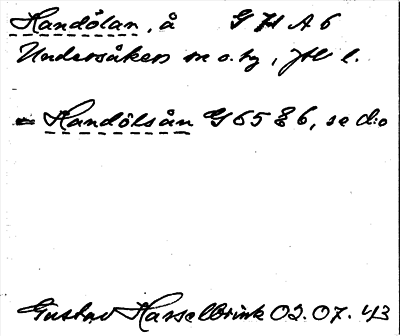 Handölan, å G JI A 6
Undersåkers sn o. hg, Jtl l.
= Handölsån G 65 E 6, se d:o
Gustav Hasselbrink 02.07.43